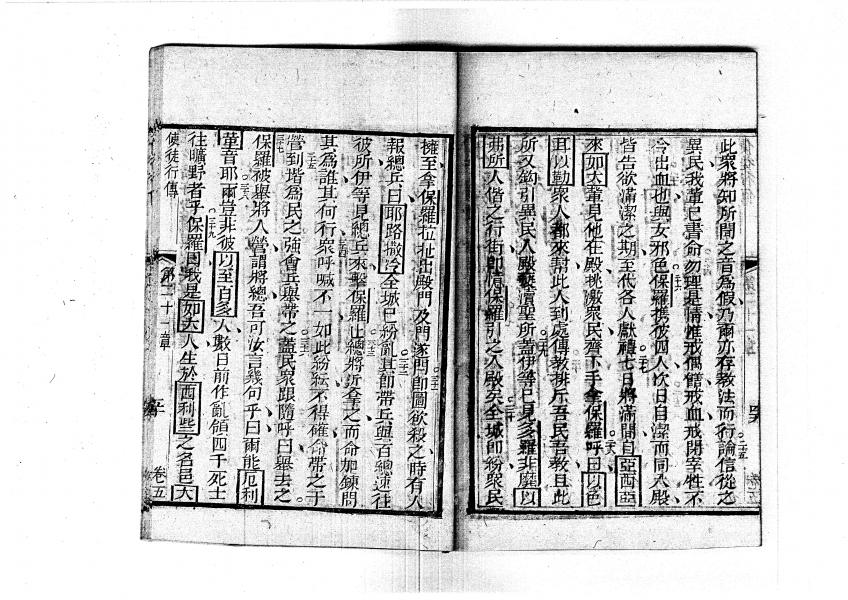 此衆將知所聞之音爲假乃爾亦存教法而行論信從之
異民我輩已書命勿理是情惟戒偶儕戒血戒閉宰牲不
今出血也與女邪色保羅携彼四人次日自潔而同入殿
皆告欲滿潔之期至代各人獻禮七日將滿間自亞西亞
來如大輩見他在殿挑激衆民齊下手拿保羅呼曰以色
耳以勒衆人都來幫此人到處傳教排斥吾民吾教且此
所又鈎引異民入殿褻瀆聖所蓋伊等已見多羅非麾以
弗所人偕之行街卽 保羅引之入殿矣全城卽紛衆民
擁至拿保羅拉扯出殿門及門遂閂卽圖欲殺之時有人
報總兵曰耶路撒冷全城已紛亂其卽帶兵與百總速往
彼所伊等見總兵來擊保羅止總將近拿之而命加鍊問
其爲誰其何行衆呼喊不一如此紛紜不得確命帶之于
營到堦爲民之強會兵舉帶之蓋民衆跟隨呼曰舉去之
保羅被舉將入營謂將總吾可汝言幾句乎曰爾能厄利
西音耶爾豈非彼以至百多人數日前作亂領四千死士
往曠野者乎保羅曰我是如大人生於西利些之名邑大
使徒行傳
第二十一章
卷五